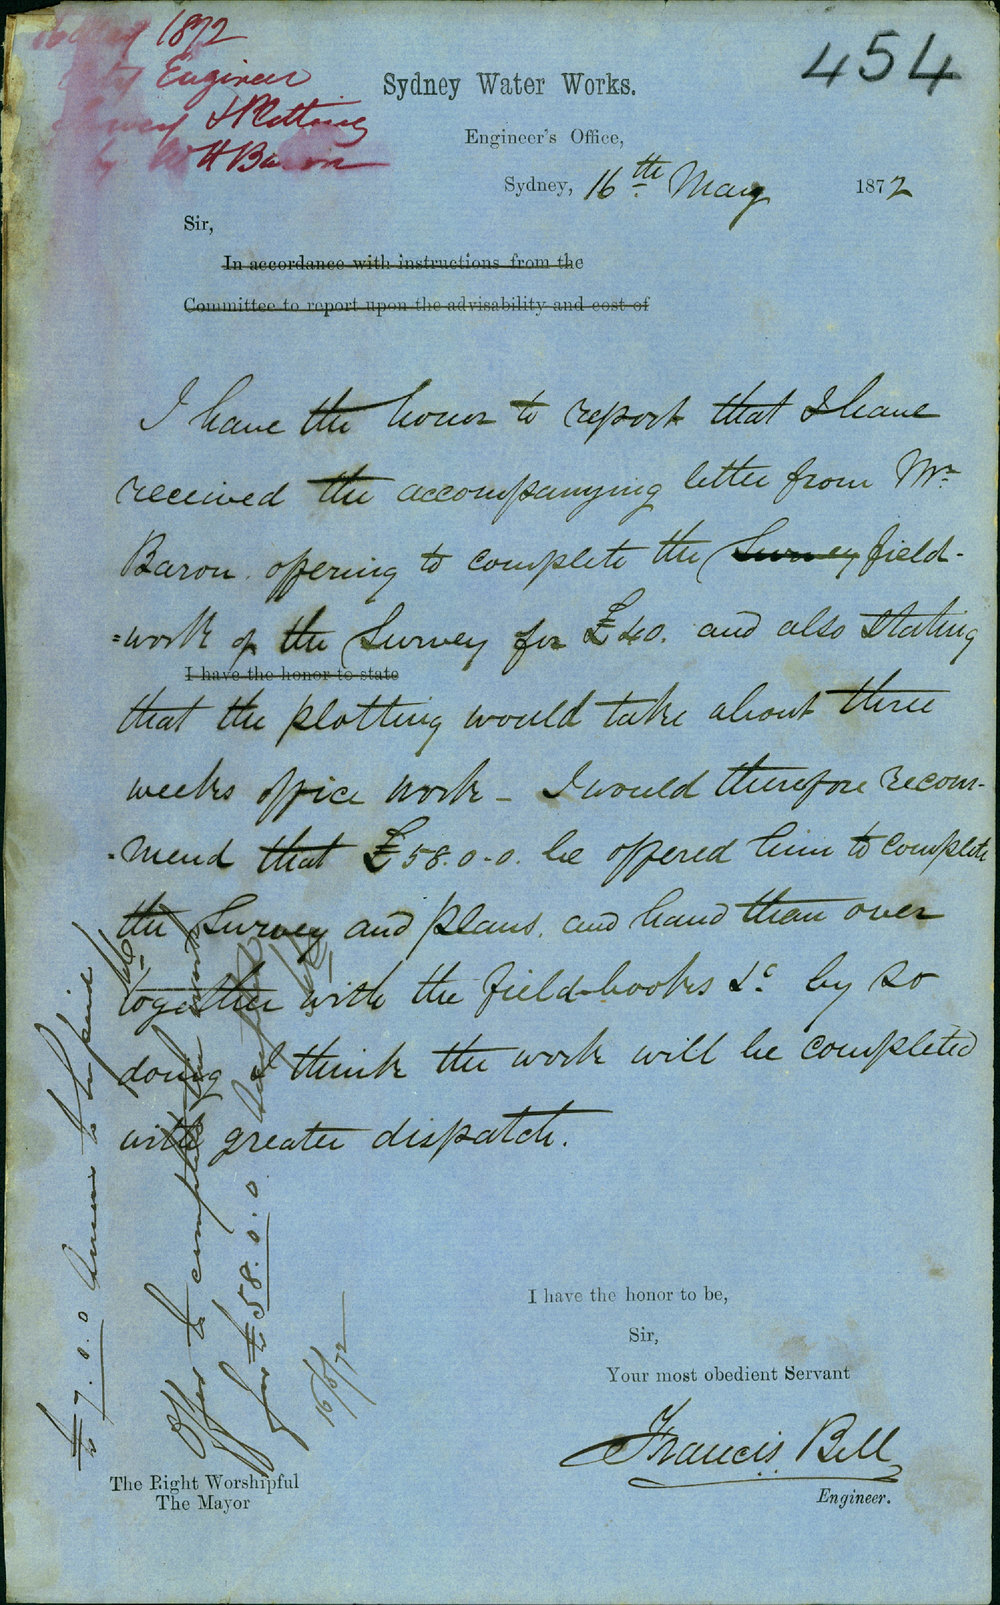 1872
454
Engineer
& Plotting
by W H Baron
Sydney Water Works.
Engineer's Office,
Sydney, 16th May 1872
Sir,
In accordance with instructions from the
Committee to report upon the advisability and cost of
I have the honor to report that I have
received the accompanying letter from Mr
Baron offering to complete the Survey field-
=work of the Survey for £40. and also stating
I have the honor to state
that the plotting would take about three
weeks office work - I would therefore recom-
=mend that £58.0.0. be offered him to complete
the Survey and plans, and hand them over
together with the field-books &c by so
doing I think the work will be completed
with greater dispatch.
£7.0.0 to be paid
Offer to complete for
for £58.0.0
16/5/72
I have the honor to be,
Sir,
Your most obedient Servant
Francis Bell
Engineer.
The Right Worshipful
The Mayor